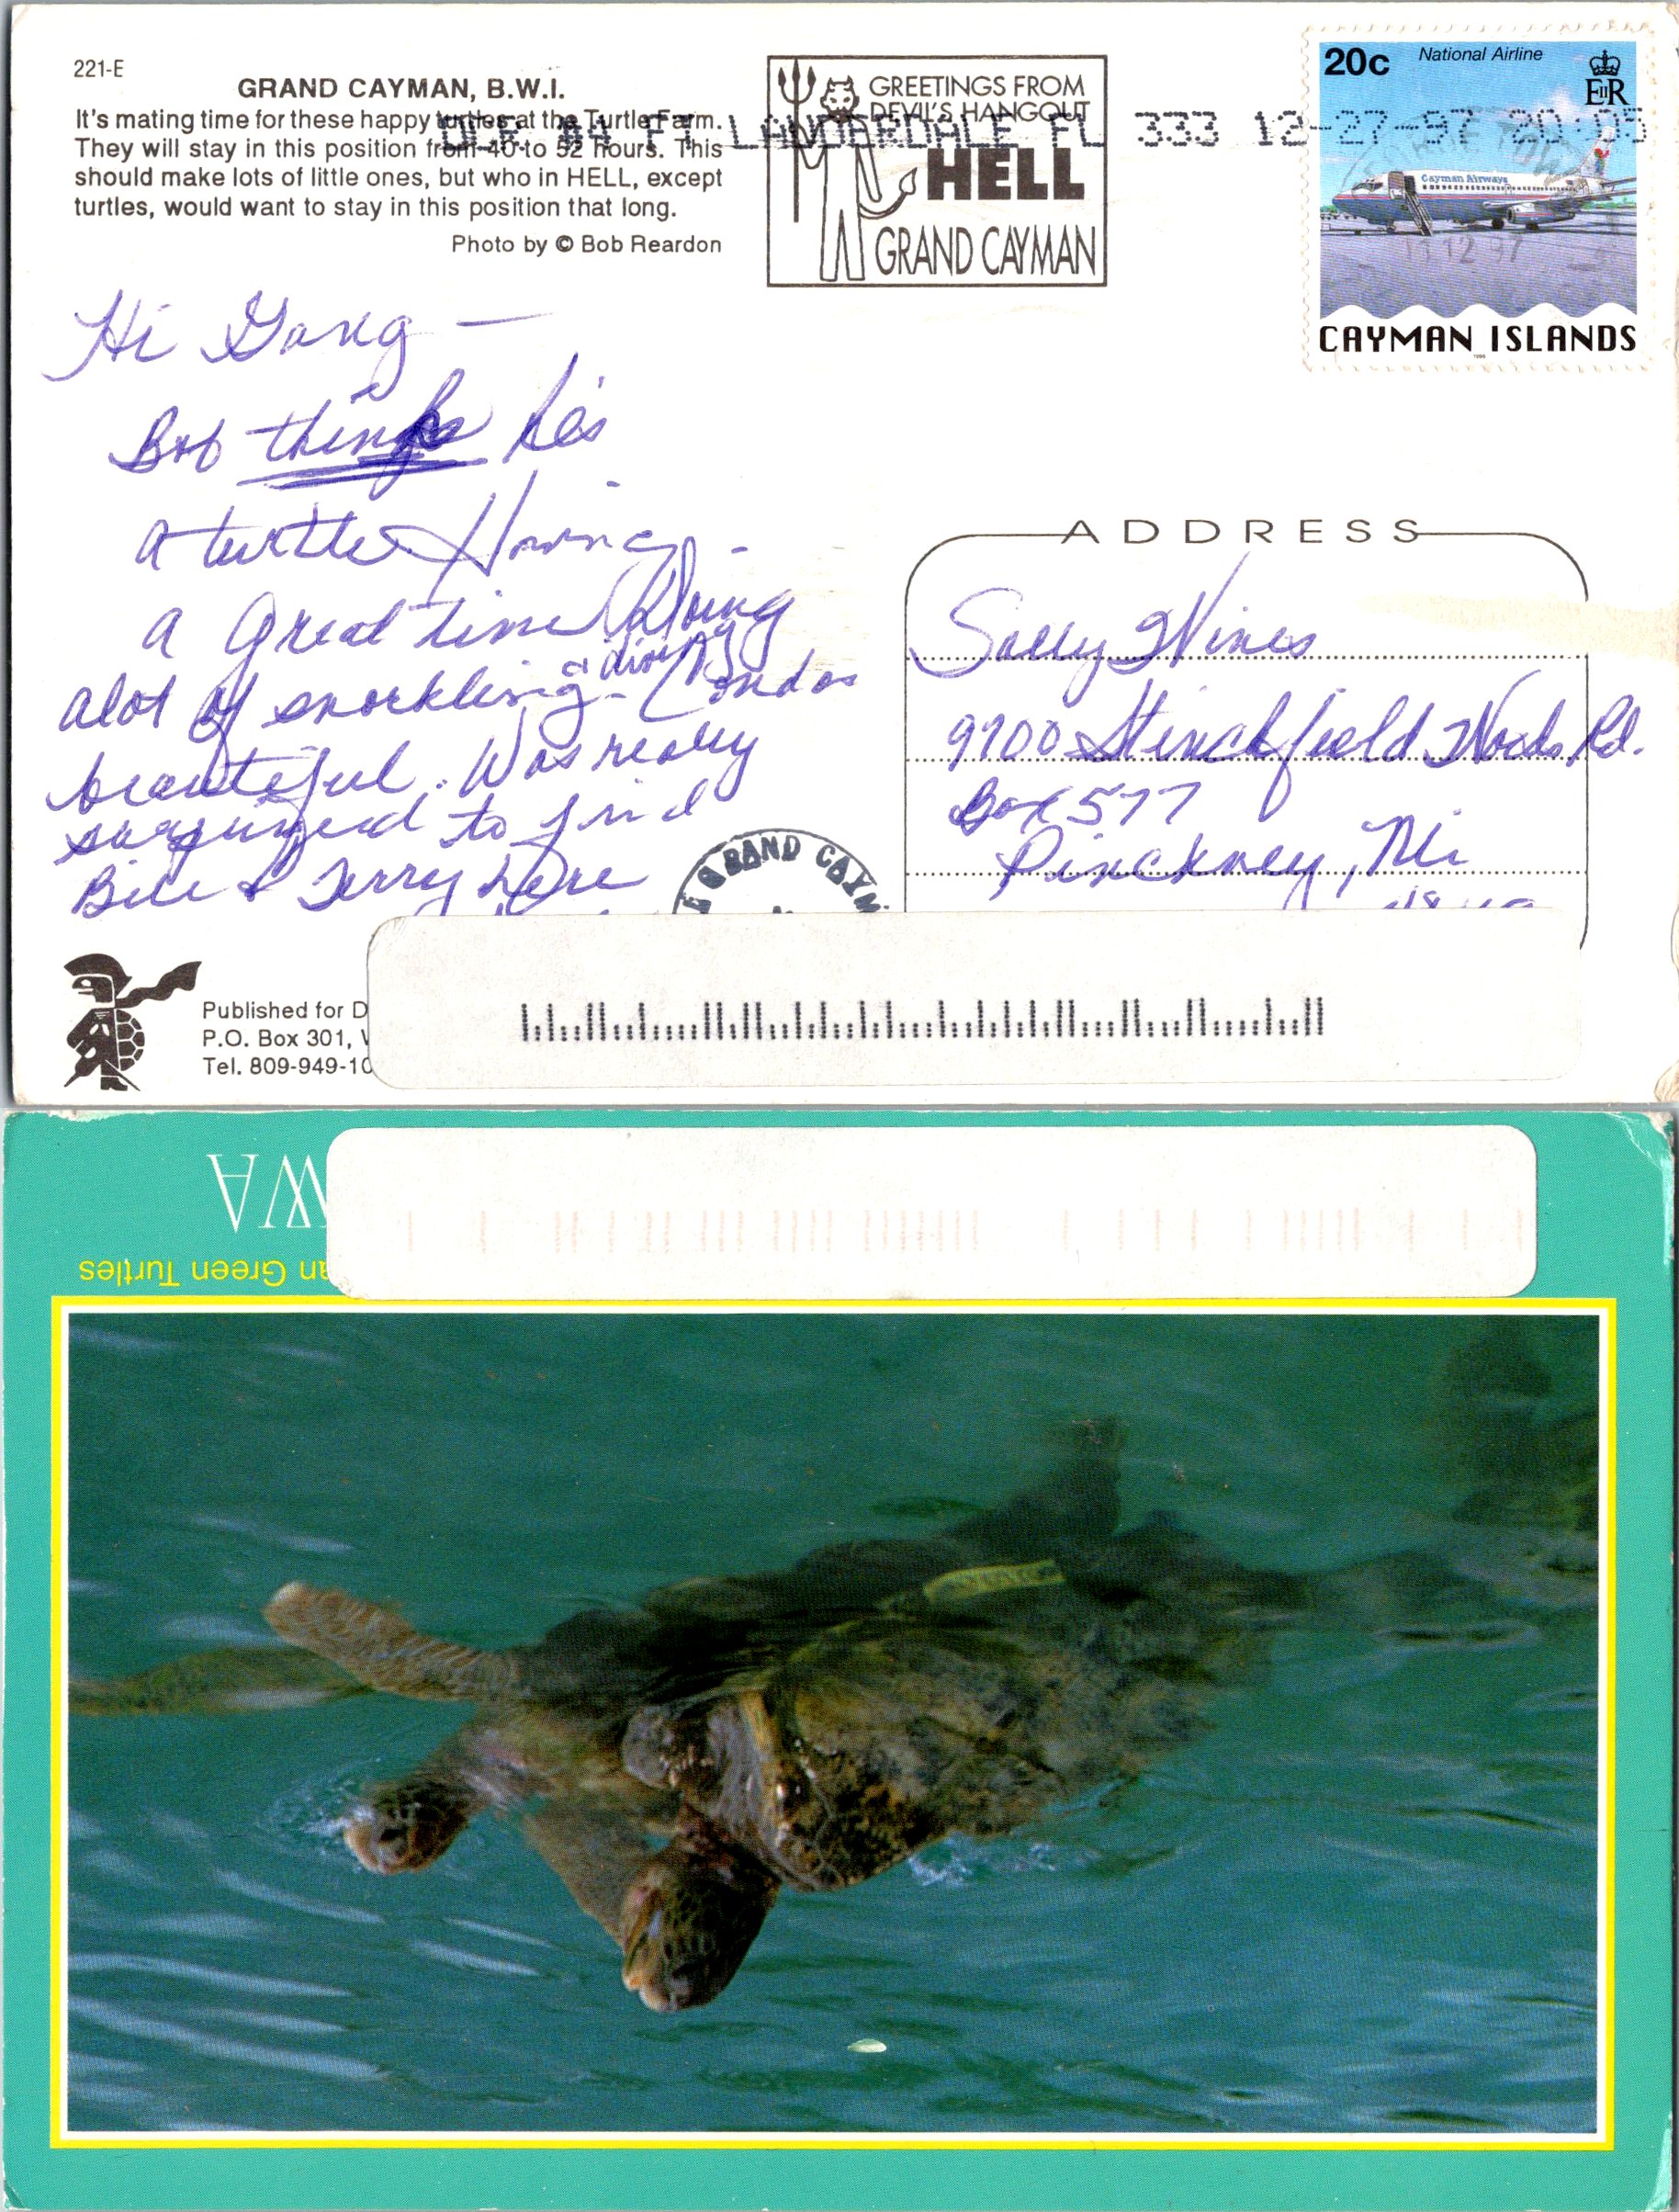 221-E
GRAND CAYMAN, B.W.I.
It's mating time for these happy turtles at the Turtle Farm.
They will stay in this position from 40 to 52 hours. This
should make lots of little ones, but who in HELL, except
turtles, would want to stay in this position that long.
Photo by © Bob Reardon
GREETINGS FROM
DEVIL'S HANGOUT
HELL
GRAND CAYMAN
FT LAUDERDALE FL 333 12-27-97 20:05
20c National Airline
EIIR
Cayman Airways
12 97
CAYMAN ISLANDS
1996
Hi Gang —
Bob thinks he's
a turtle. Having
a Great time Doing
alot of snorkling & diving - Condos
beautiful. Was really
surprised to find
Bill & Terry here
GRAND CAYM
ADDRESS
Sally Wines
9700 Stinchfield Woods Rd.
Box 577
Pinckney, Mi
Published for D
P.O. Box 301, W
Tel. 809-949-10
WA
an Green Turtles